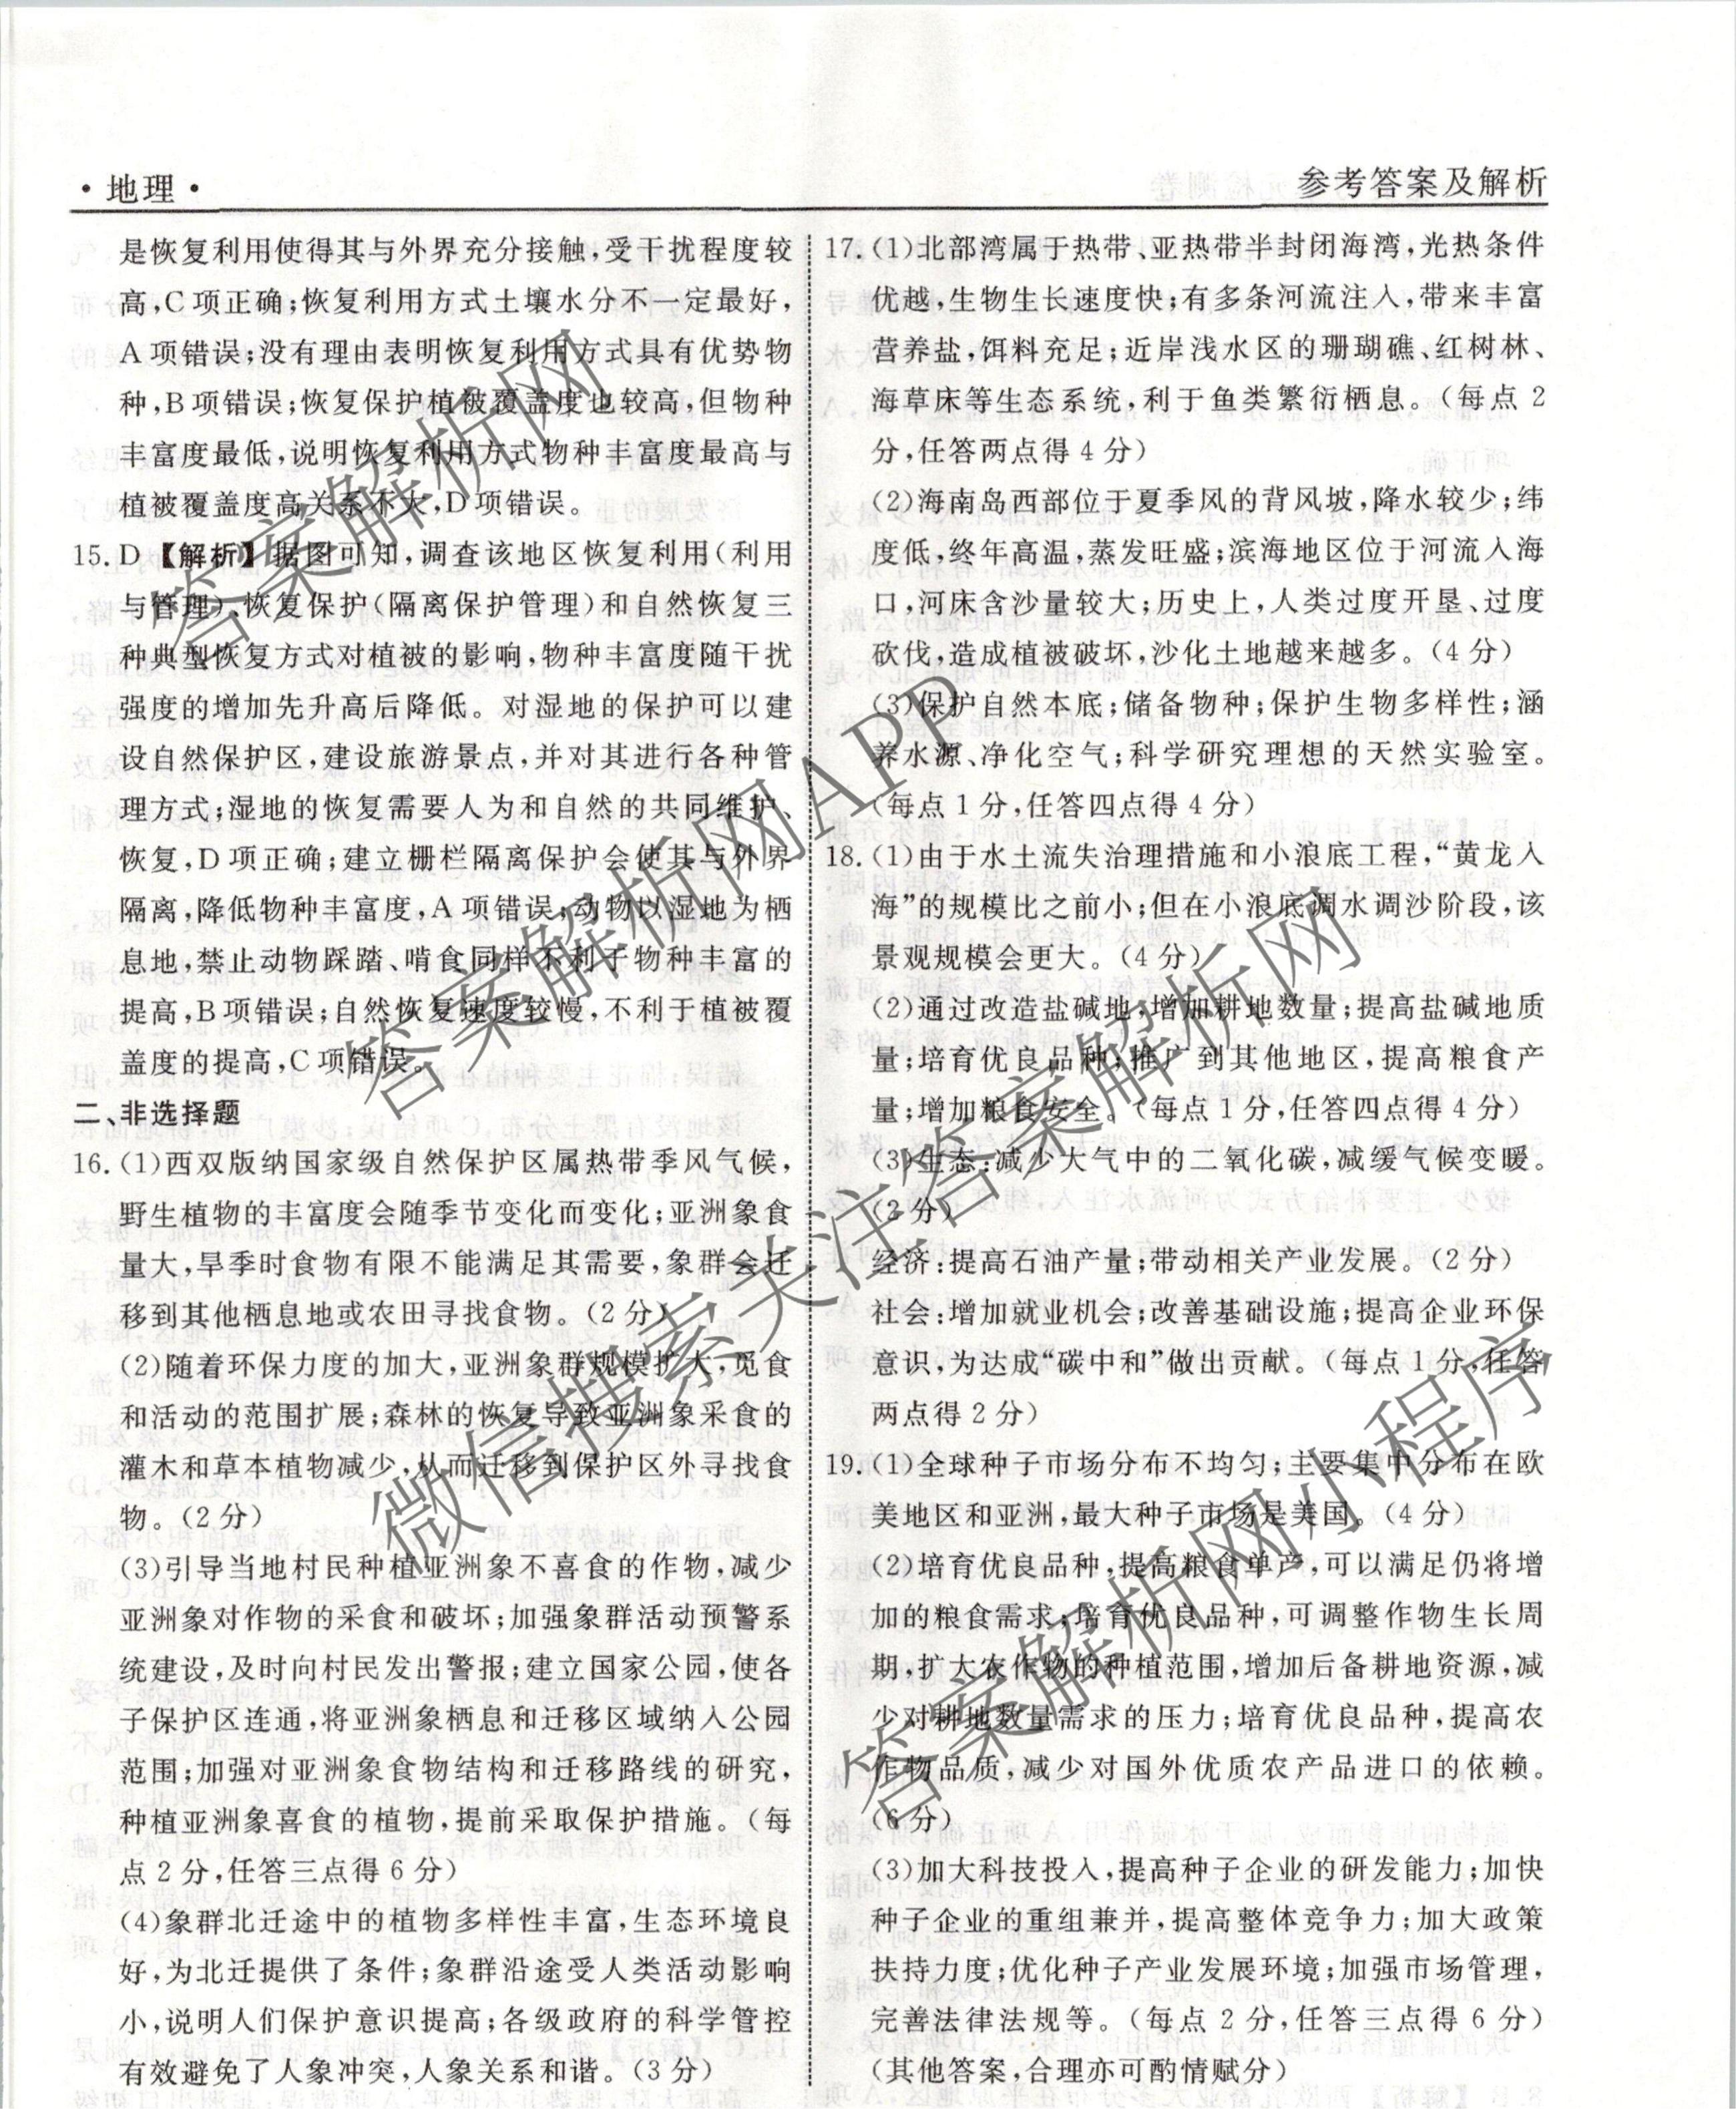 ·地理·
参考答案及解析
是恢复利用使得其与外界充分接触,受干扰程度较
高,C项正确;恢复利用方式土壤水分不一定最好,
A项错误;没有理由表明恢复利用方式具有优势物
种,B项错误;恢复保护植被覆盖度也较高,但物种
丰富度最低,说明恢复利用方式物种丰富度最高与
植被覆盖度高关系不大,D项错误。
15. D 【解析】据图可知,调查该地区恢复利用(利用
与管理)、恢复保护(隔离保护管理)和自然恢复三
种典型恢复方式对植被的影响,物种丰富度随干扰
强度的增加先升高后降低。对湿地的保护可以建
设自然保护区,建设旅游景点,并对其进行各种管
理方式;湿地的恢复需要人为和自然的共同维护、
恢复,D项正确;建立栅栏隔离保护会使其与外界
隔离,降低物种丰富度,A项错误;动物以湿地为栖
息地,禁止动物踩踏、啃食同样不利于物种丰富的
提高,B项错误;自然恢复速度较慢,不利于植被覆
盖度的提高,C项错误。
二、非选择题
16. (1)西双版纳国家级自然保护区属热带季风气候,
野生植物的丰富度会随季节变化而变化;亚洲象食
量大,旱季时食物有限不能满足其需要,象群会迁
移到其他栖息地或农田寻找食物。(2分)
(2)随着环保力度的加大,亚洲象群规模扩大,觅食
和活动的范围扩展;森林的恢复导致亚洲象采食的
灌木和草本植物减少,从而迁移到保护区外寻找食
物。(2分)
(3)引导当地村民种植亚洲象不喜食的作物,减少
亚洲象对作物的采食和破坏;加强象群活动预警系
统建设,及时向村民发出警报;建立国家公园,使各
子保护区连通,将亚洲象栖息和迁移区域纳入公园
范围;加强对亚洲象食物结构和迁移路线的研究,
种植亚洲象喜食的植物,提前采取保护措施。(每
点2分,任答三点得6分)
(4)象群北迁途中的植物多样性丰富,生态环境良
好,为北迁提供了条件;象群沿途受人类活动影响
小,说明人们保护意识提高;各级政府的科学管控
有效避免了人象冲突,人象关系和谐。(3分)
17. (1)北部湾属于热带、亚热带半封闭海湾,光热条件
优越,生物生长速度快;有多条河流注入,带来丰富
营养盐,饵料充足;近岸浅水区的珊瑚礁、红树林、
海草床等生态系统,利于鱼类繁衍栖息。(每点2
分,任答两点得4分)
(2)海南岛西部位于夏季风的背风坡,降水较少;纬
度低,终年高温,蒸发旺盛;滨海地区位于河流入海
口,河床含沙量较大;历史上,人类过度开垦、过度
砍伐,造成植被破坏,沙化土地越来越多。(4分)
(3)保护自然本底;储备物种;保护生物多样性;涵
养水源、净化空气;科学研究理想的天然实验室。
(每点1分,任答四点得4分)
18. (1)由于水土流失治理措施和小浪底工程,“黄龙入
海”的规模比之前小;但在小浪底调水调沙阶段,该
景观规模会更大。(4分)
(2)通过改造盐碱地,增加耕地数量;提高盐碱地质
量;培育优良品种;推广到其他地区,提高粮食产
量;增加粮食安全。(每点1分,任答四点得4分)
(3)生态:减少大气中的二氧化碳,减缓气候变暖。
(2分)
经济:提高石油产量;带动相关产业发展。(2分)
社会:增加就业机会;改善基础设施;提高企业环保
意识,为达成“碳中和”做出贡献。(每点1分,任答
两点得2分)
19. (1)全球种子市场分布不均匀;主要集中分布在欧
美地区和亚洲,最大种子市场是美国。(4分)
(2)培育优良品种,提高粮食单产,可以满足仍将增
加的粮食需求;培育优良品种,可调整作物生长周
期,扩大农作物的种植范围,增加后备耕地资源,减
少对耕地数量需求的压力;培育优良品种,提高农
作物品质,减少对国外优质农产品进口的依赖。
(6分)
(3)加大科技投入,提高种子企业的研发能力;加快
种子企业的重组兼并,提高整体竞争力;加大政策
扶持力度;优化种子产业发展环境;加强市场管理,
完善法律法规等。(每点2分,任答三点得6分)
(其他答案,合理亦可酌情赋分)
答案解析网
答案解析网APP
微信搜索关注答案解析网
答案解析网小程序